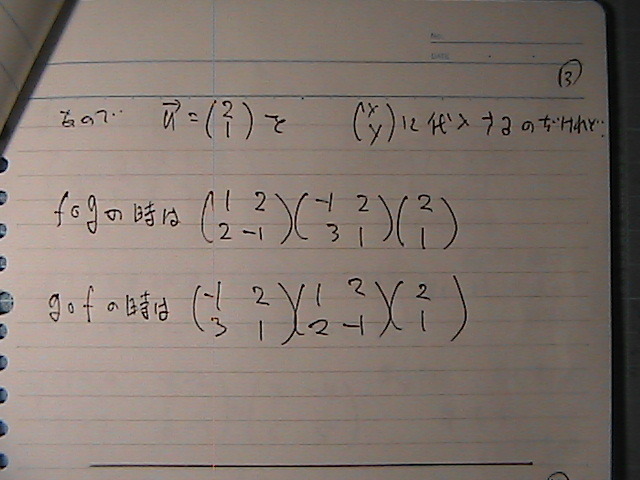 NO.
DATE
③
なので u→=(2 1)を (x y)に代入するのだけれど、
f∘gの時は (1 2 2 -1)(-1 2 3 1)(2 1)
g∘fの時は (-1 2 3 1)(1 2 2 -1)(2 1)